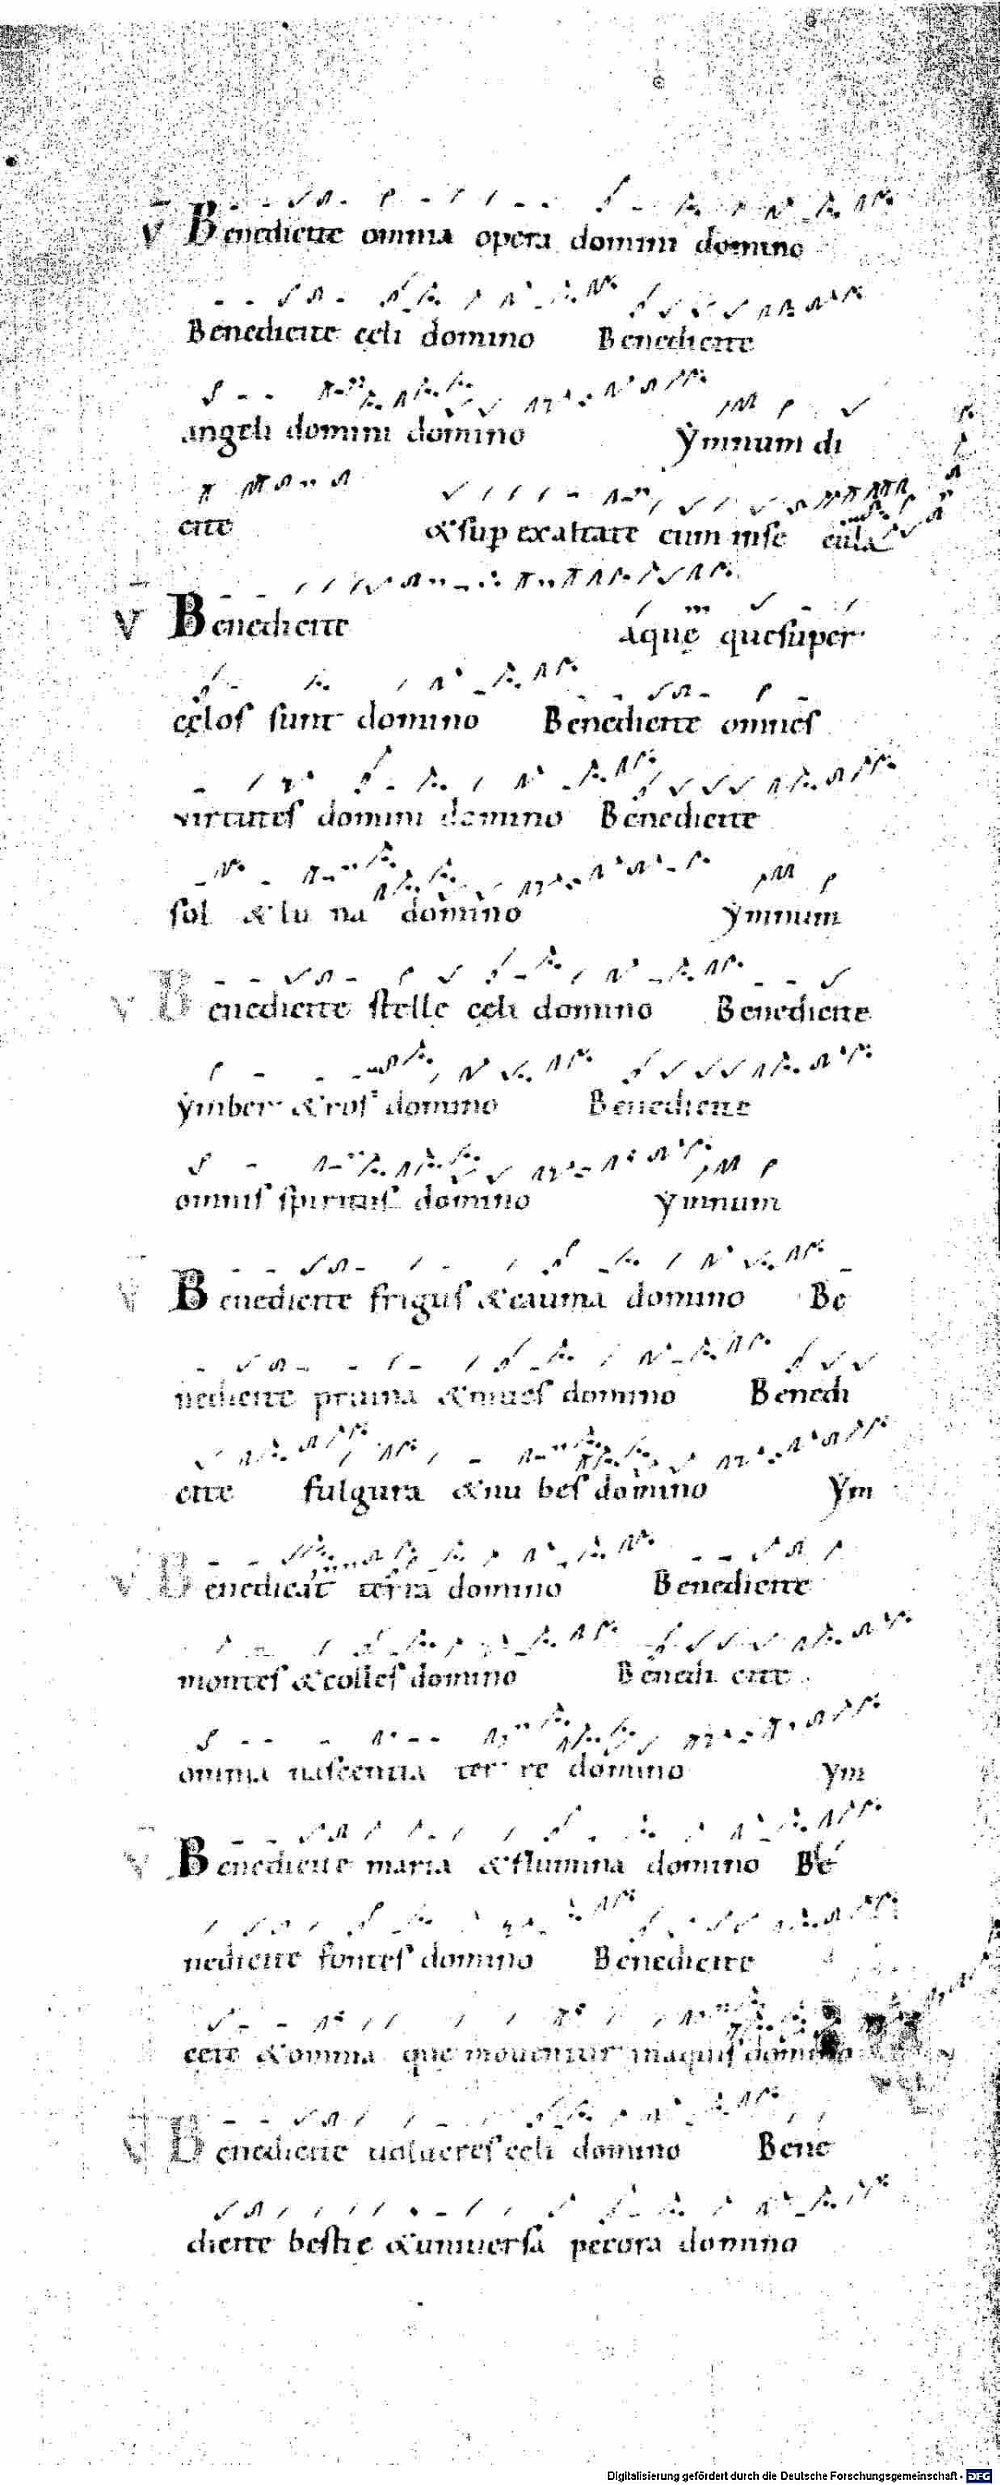 V Benedicite omnia opera domini domino
Benedicite cęli domino Benedicite
angeli domini domino ẏmnum di
cite &sup exaltate eum inse cula
V Benedicite aquę quesuper
cęlos sunt domino Benedicite omnes
virtutes domini domino Benedicite
sol & lu na domino ẏmnum
V Benedicite stelle cęli domino Benedicite
ẏmber &ros domino Benedicite
omnis spiritus domino ẏmnum
V Benedicite frigus &cauma domino Be
nedicite pruina &niues domino Benedi
cite fulgura &nu bes domino ẏm
V Benedicat terra domino Benedicite
montes &colles domino Benedi cite
omnia nascentia ter re domino ẏm
V Benedicite maria &flumina domino Be
nedicite fontes domino Benedicite
cete &omnia que mouentur inaquis domino
V Benedicite uolucres cęli domino Bene
dicite bestie &uniuersa pecora domino
Digitalisierung gefördert durch die Deutsche Forschungsgemeinschaft - DFG